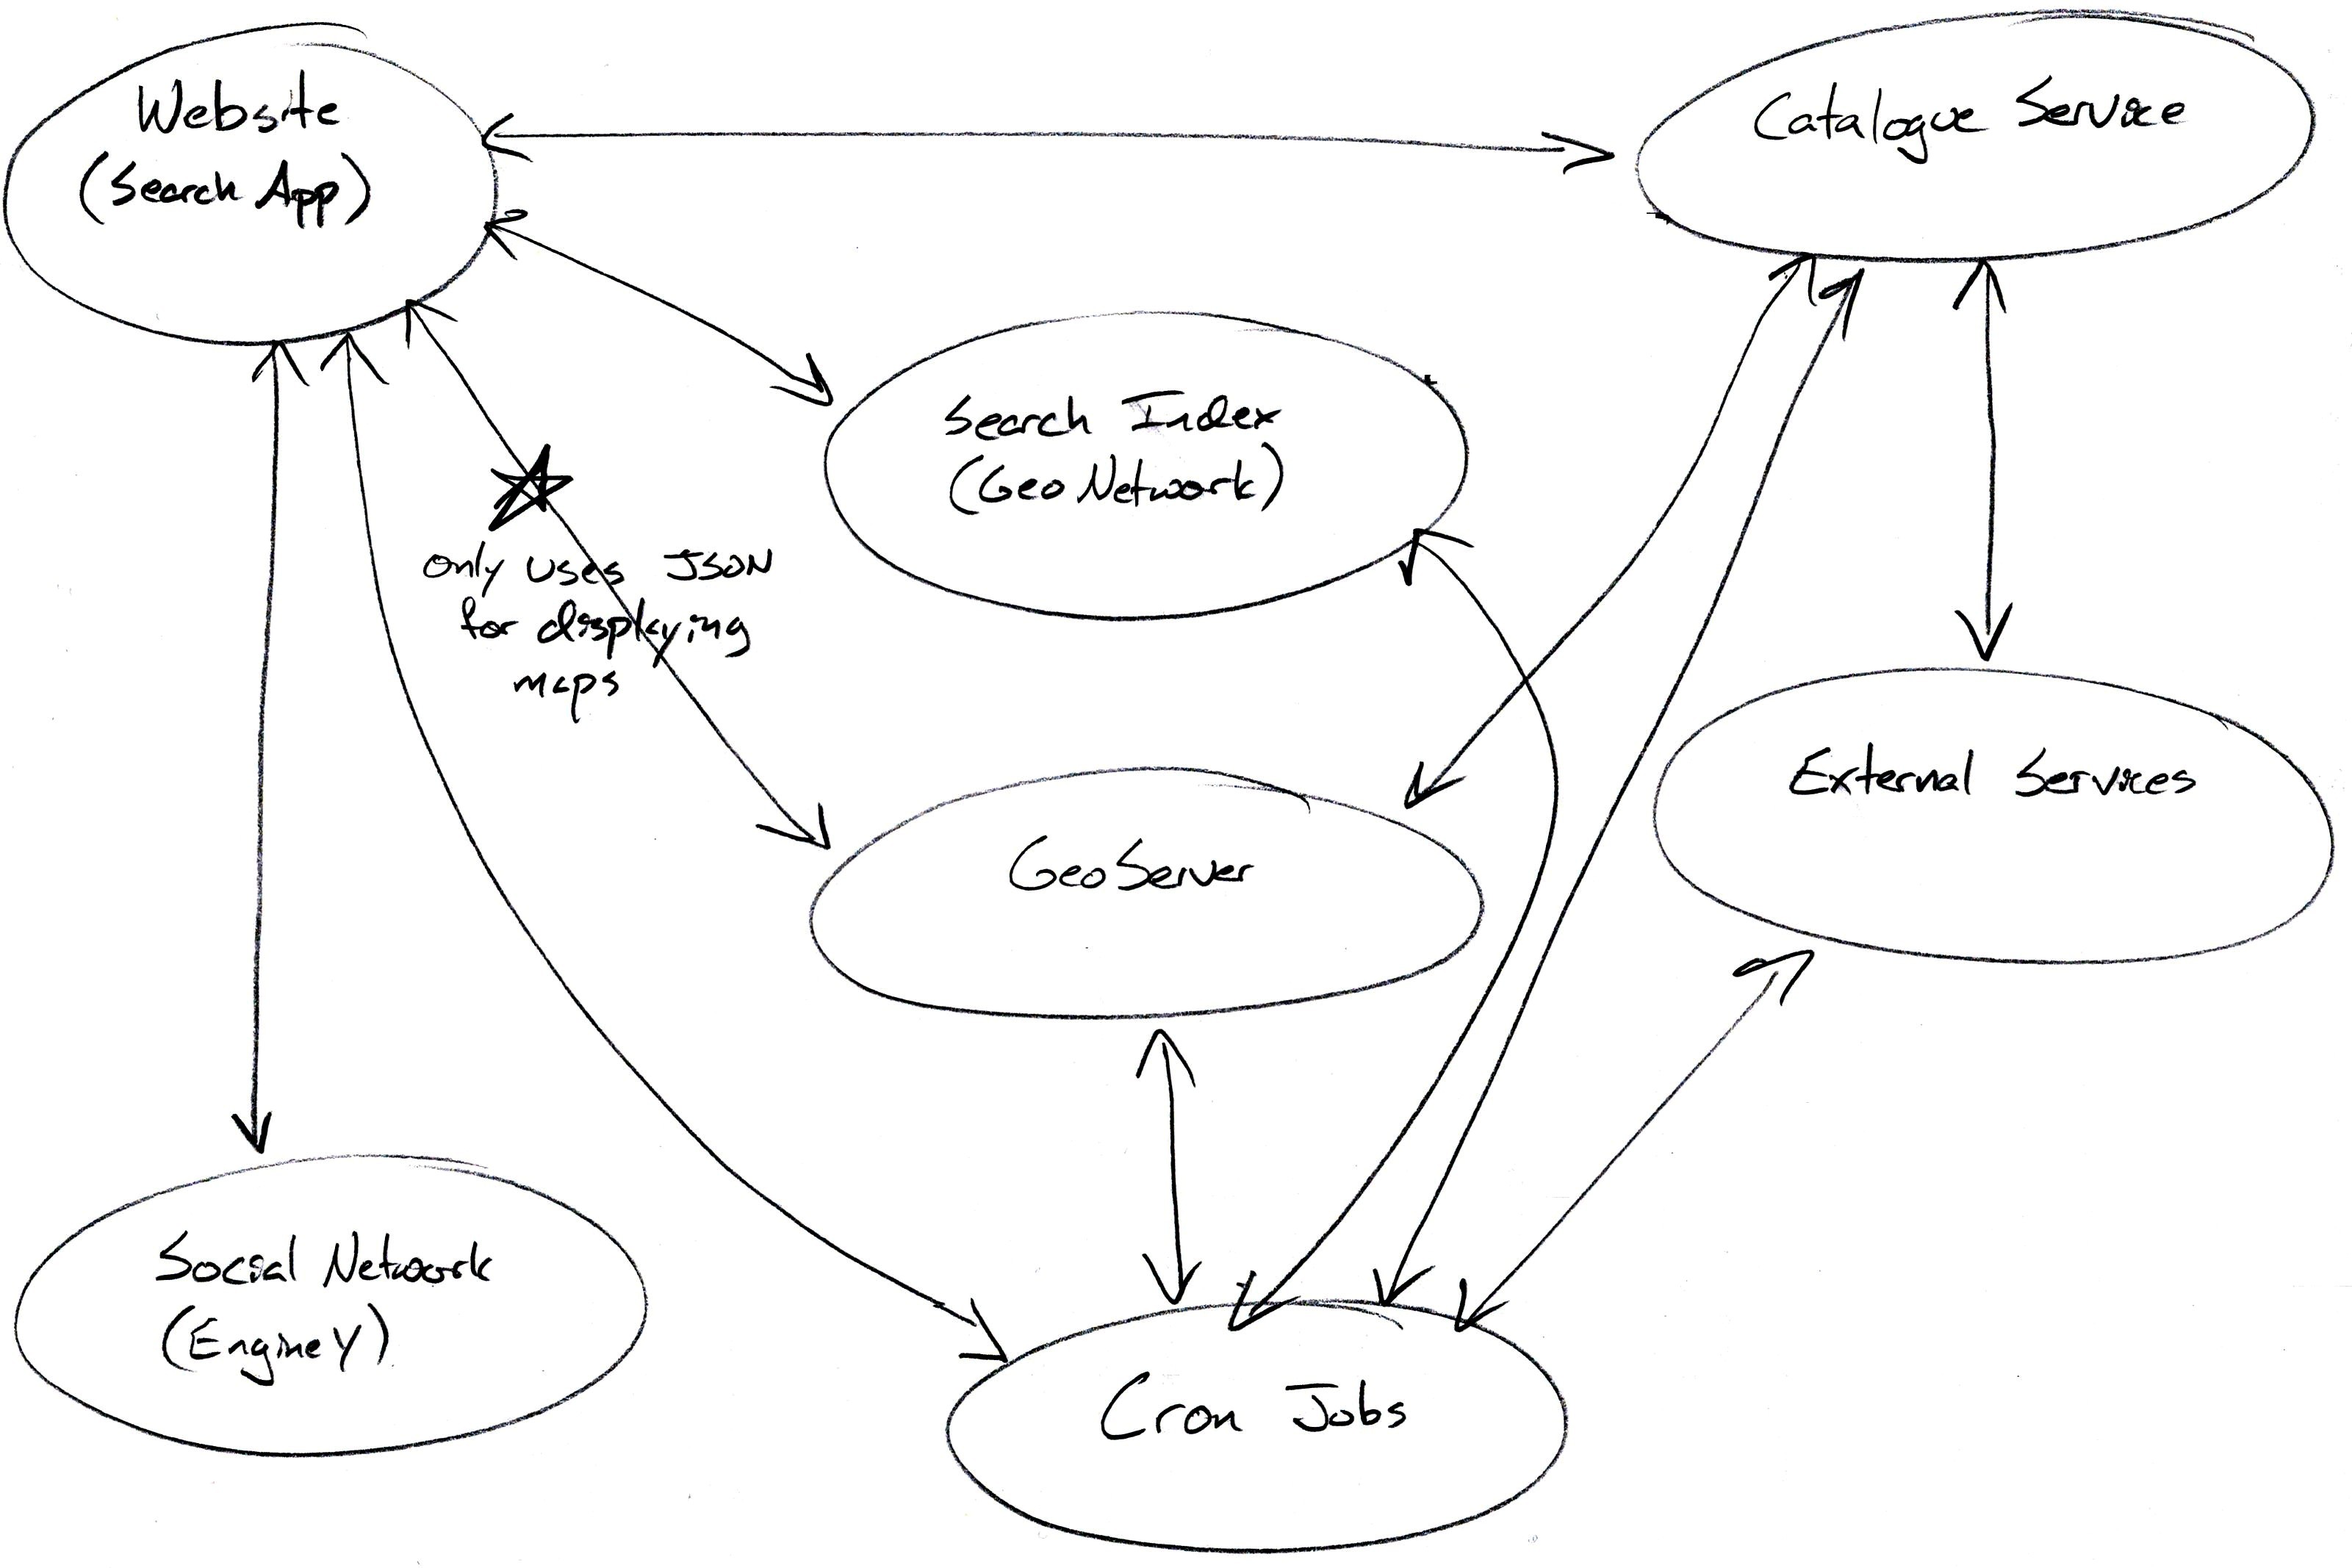 Website
(Search App)
Catalogue Service
Search Index
(GeoNetwork)
only uses JSON
for displaying
maps
External Services
GeoServer
Social Network
(EngineY)
Cron Jobs